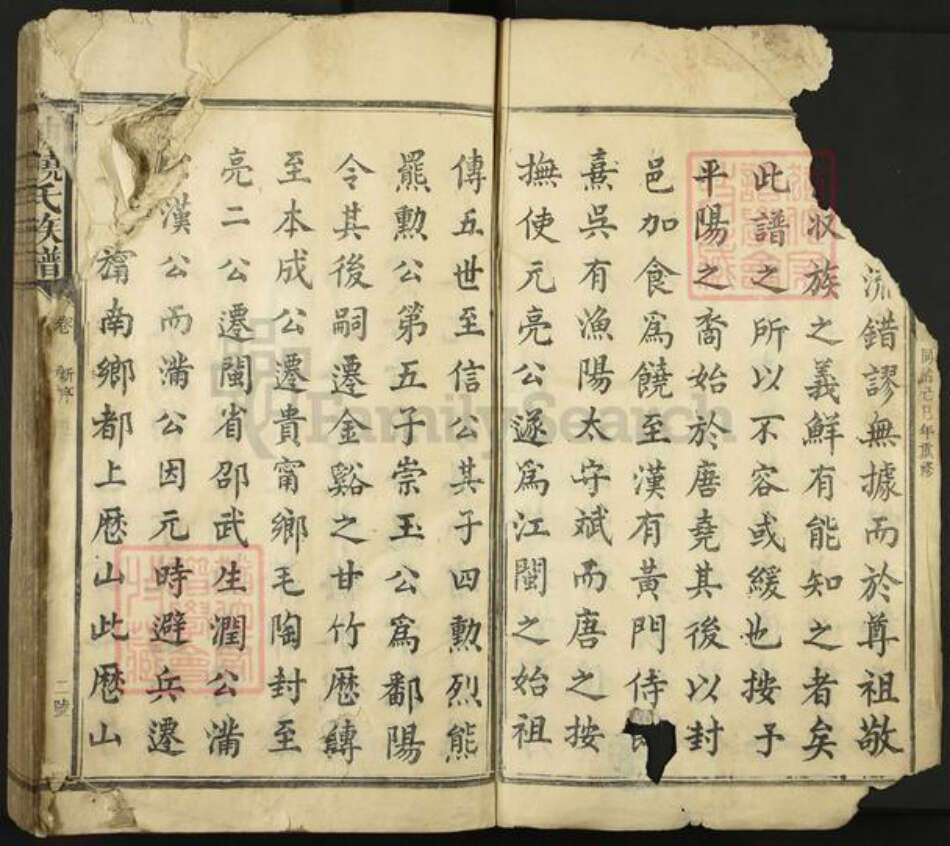 同治己巳年重修
流錯謬無據而於尊祖敬
收族之義鮮有能知之者矣
此譜之所以不容或緩也按予
平陽之裔始於唐堯其後以封
邑加食為饒至漢有黃門侍
熹吳有漁陽太守斌而唐之按
撫使元亮公遂為江閩之始祖
傳五世至信公其子四勲烈熊
羆勲公第五子崇玉公為鄱陽
令其後嗣遷金谿之甘竹歷轉
至本成公遷貴甯鄉毛陶封至
亮二公遷閩省邵武生潤公滿
漢公而滿公因元時避兵遷
甯南鄉都上歷山此歷山
饒氏族譜
卷
新序
二號
FamilySearch